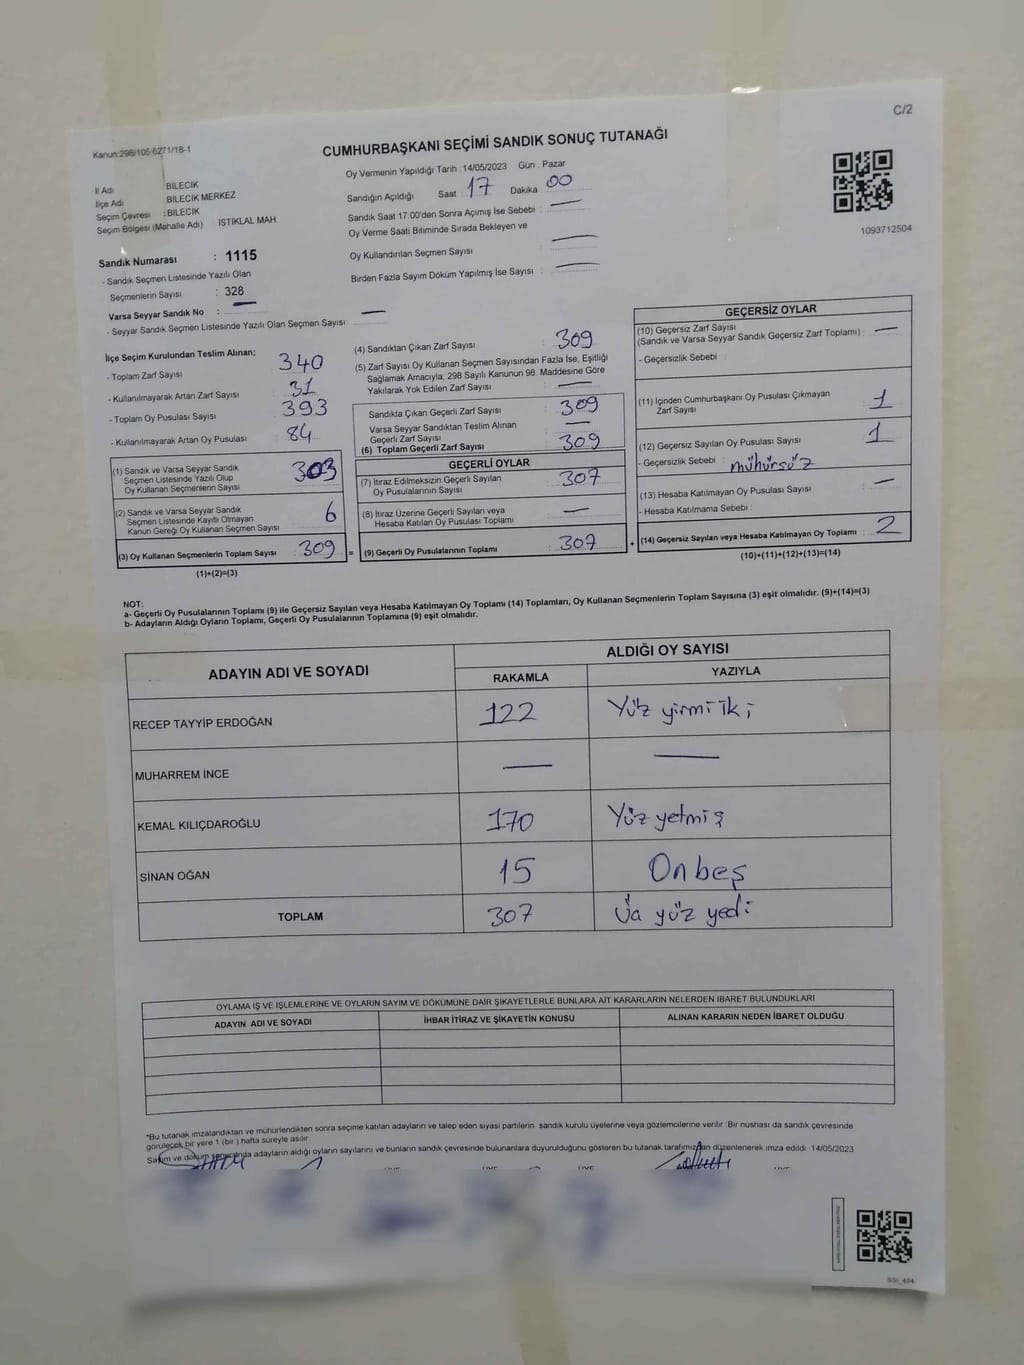 C/2
Kanun:298/105:6271/18-1
CUMHURBAŞKANI SEÇİMİ SANDIK SONUÇ TUTANAĞI
Oy Vermenin Yapıldığı Tarih : 14/05/2023 Gün : Pazar
İl Adı : BİLECİK
İlçe Adı : BİLECİK MERKEZ
Seçim Çevresi : BİLECİK
Seçim Bölgesi (Mahalle Adı) : İSTİKLAL MAH.
Sandığın Açıldığı Saat : 17 Dakika : 00
Sandık Saat 17.00'den Sonra Açımış İse Sebebi : —
Oy Verme Saati Bitiminde Sırada Bekleyen ve
Oy Kullandırılan Seçmen Sayısı : —
Birden Fazla Sayım Döküm Yapılmış İse Sayısı : —
1093712504
Sandık Numarası : 1115
- Sandık Seçmen Listesinde Yazılı Olan
Seçmenlerin Sayısı : 328
Varsa Seyyar Sandık No : —
- Seyyar Sandık Seçmen Listesinde Yazılı Olan Seçmen Sayısı: —
İlçe Seçim Kurulundan Teslim Alınan;
- Toplam Zarf Sayısı : 340
- Kullanılmayarak Artan Zarf Sayısı : 31
- Toplam Oy Pusulası Sayısı : 393
- Kullanılmayarak Artan Oy Pusulası : 84
(1) Sandık ve Varsa Seyyar Sandık
Seçmen Listesinde Yazılı Olup
Oy Kullanan Seçmenlerin Sayısı : 303
(2) Sandık ve Varsa Seyyar Sandık
Seçmen Listesinde Kayıtlı Olmayan
Kanun Gereği Oy Kullanan Seçmen Sayısı : 6
(3) Oy Kullanan Seçmenlerin Toplam Sayısı : 309
(1)+(2)=(3)
(4) Sandıktan Çıkan Zarf Sayısı : 309
(5) Zarf Sayısı Oy Kullanan Seçmen Sayısından Fazla İse, Eşitliği
Sağlamak Amacıyla, 298 Sayılı Kanunun 98. Maddesine Göre
Yakılarak Yok Edilen Zarf Sayısı : —
Sandıkta Çıkan Geçerli Zarf Sayısı : 309
Varsa Seyyar Sandıktan Teslim Alınan
Geçerli Zarf Sayısı : —
(6) Toplam Geçerli Zarf Sayısı : 309
GEÇERLİ OYLAR
(7) İtiraz Edilmeksizin Geçerli Sayılan
Oy Pusulalarının Sayısı : 307
(8) İtiraz Üzerine Geçerli Sayılan veya
Hesaba Katılan Oy Pusulası Toplamı : —
= (9) Geçerli Oy Pusulalarının Toplamı : 307 +
GEÇERSİZ OYLAR
(10) Geçersiz Zarf Sayısı
(Sandık ve Varsa Seyyar Sandık Geçersiz Zarf Toplamı) : —
- Geçersizlik Sebebi :
(11) İçinden Cumhurbaşkanı Oy Pusulası Çıkmayan
Zarf Sayısı : 1
(12) Geçersiz Sayılan Oy Pusulası Sayısı : 1
- Geçersizlik Sebebi : mühürsüz
(13) Hesaba Katılmayan Oy Pusulası Sayısı : —
- Hesaba Katılmama Sebebi :
(14) Geçersiz Sayılan veya Hesaba Katılmayan Oy Toplamı : 2
(10)+(11)+(12)+(13)=(14)
NOT:
a- Geçerli Oy Pusulalarının Toplamı (9) ile Geçersiz Sayılan veya Hesaba Katılmayan Oy Toplamı (14) Toplamları, Oy Kullanan Seçmenlerin Toplam Sayısına (3) eşit olmalıdır. (9)+(14)=(3)
b- Adayların Aldığı Oyların Toplamı, Geçerli Oy Pusulalarının Toplamına (9) eşit olmalıdır.
ADAYIN ADI VE SOYADI ALDIĞI OY SAYISI
RAKAMLA YAZIYLA
RECEP TAYYİP ERDOĞAN 122 Yüz yirmi iki
MUHARREM İNCE — —
KEMAL KILIÇDAROĞLU 170 Yüz yetmiş
SİNAN OĞAN 15 Onbeş
TOPLAM 307 Üç yüz yedi
OYLAMA İŞ VE İŞLEMLERİNE VE OYLARIN SAYIM VE DÖKÜMÜNE DAİR ŞİKAYETLERLE BUNLARA AİT KARARLARIN NELERDEN İBARET BULUNDUKLARI
ADAYIN ADI VE SOYADI İHBAR İTİRAZ VE ŞİKAYETİN KONUSU ALINAN KARARIN NEDEN İBARET OLDUĞU
*Bu tutanak imzalandıktan ve mühürlendikten sonra seçime katılan adayların ve talep eden siyasi partilerin sandık kurulu üyelerine veya gözlemcilerine verilir. Bir nüshası da sandık çevresinde
görülecek bir yere 1 (bir ) hafta süreyle asılır.
Sayım ve döküm sonucunda adayların aldığı oyların sayılarını ve bunların sandık çevresinde bulunanlara duyurulduğunu gösteren bu tutanak tarafımızdan düzenlenerek imza edildi. 14/05/2023